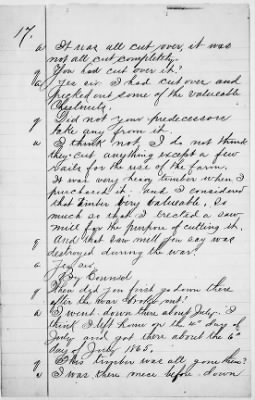 17.
a It was all cut over, it was
not all cut completely.
q You had cut over it?
a Yes sir I had cut over and
picked out some of the valuable
Chestnuts.
q Did not your predecessors
take any from it.
a I think not, I do not think
they cut anything except a few
rails for the use of the farm.
It was very heavy timber when I
purchased it: and I considered
that timber very valuable. So
much so that I erected a saw
mill for the purpose of cutting it.
q And that saw mill you say was
destroyed during the war.
a Yes sir.
By Counsel
q When did you first go down there
after the war broke out?
a I went down there about July. I
think I left home on the 4" day of
July and got there about the 6"
day of July 1865.
q This timber was all gone then?
a I was there once before down